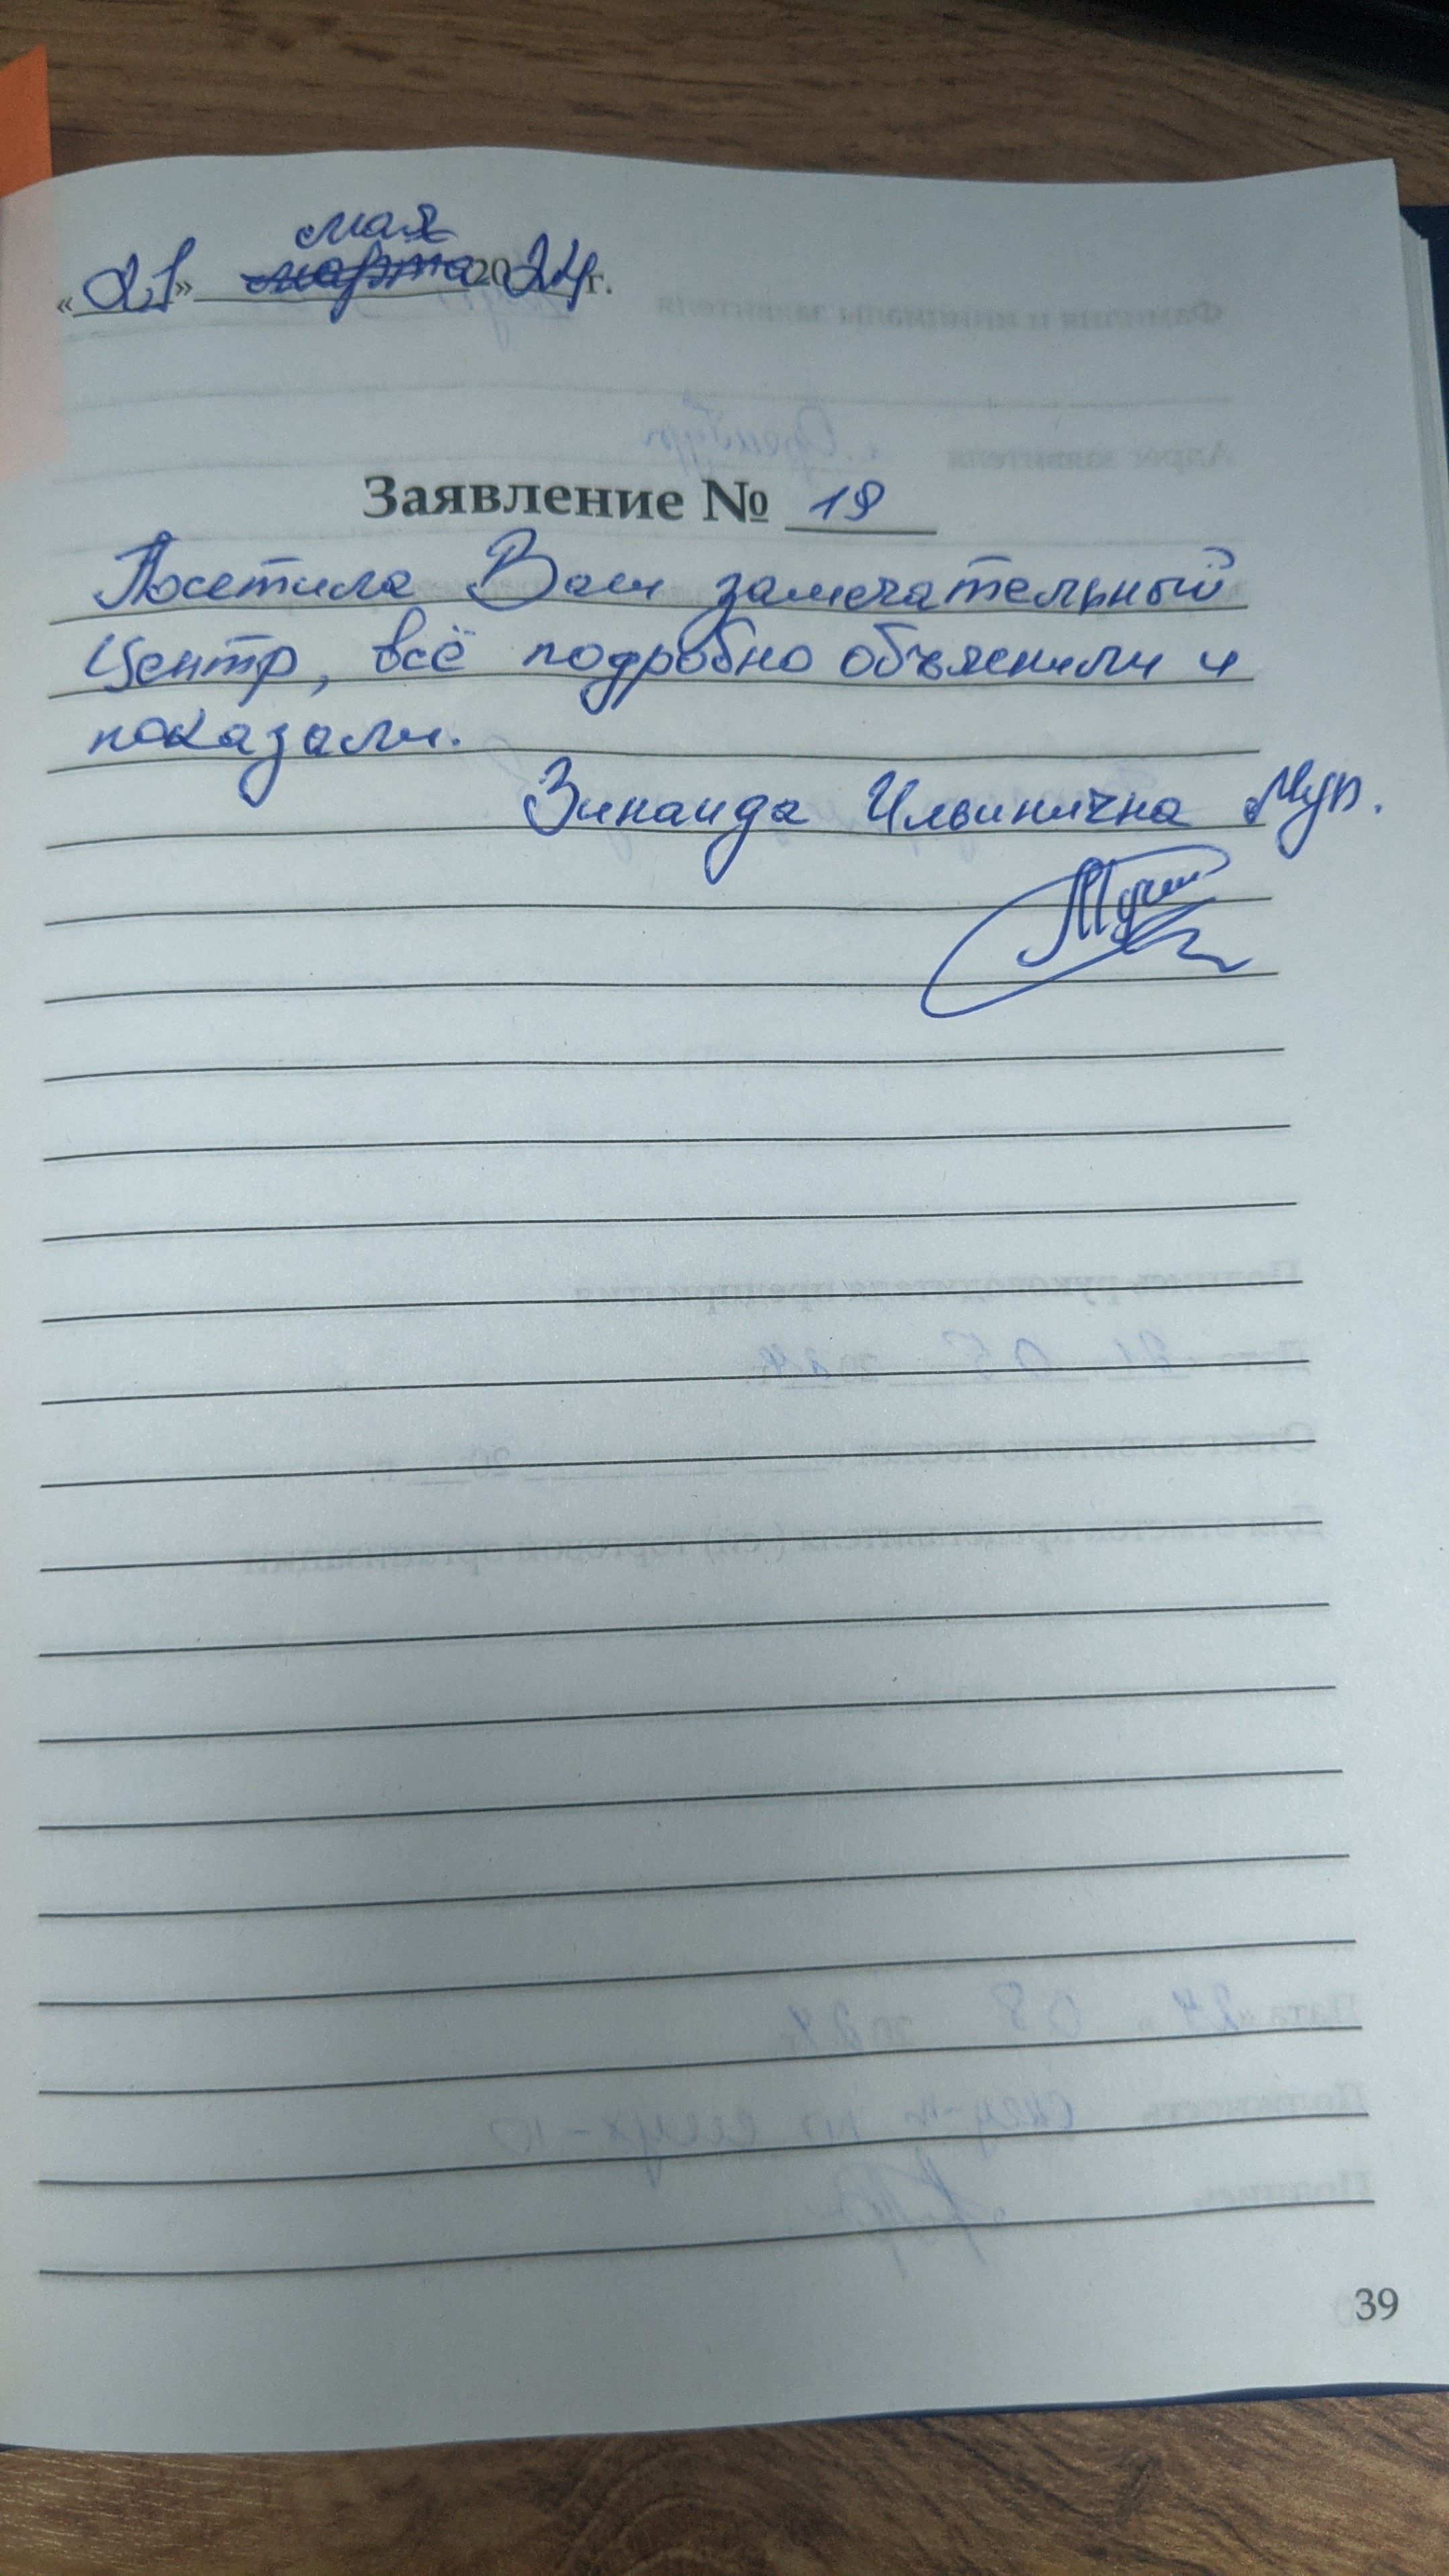 мая
«21» марта 2024г.
Заявление № 19
Посетила Ваш замечательный
Центр, всё подробно объяснили и
показали.
Зинаида Ильинична Мур.
39